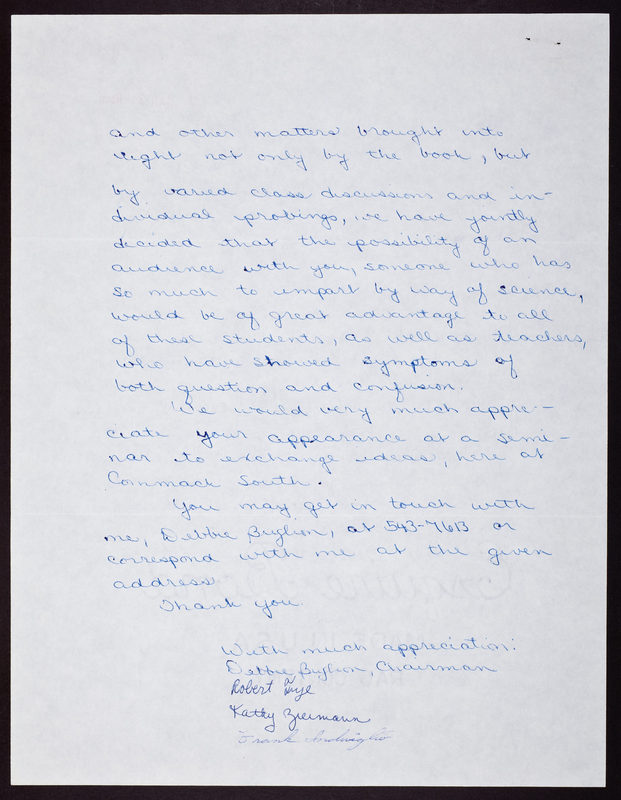 and other matters brought into
light not only by the book, but
by varied class discussions and in-
dividual probings, we have jointly
decided that the possibility of an
audience with you, someone who has
so much to impart by way of science,
would be of great advantage to all
of these students, as well as teachers,
who have showed symptoms of
both question and confusion.
We would very much appre-
ciate your appearance at a semi-
nar to exchange ideas, here at
Commack South.
You may get in touch with
me, Debbie Buglion, at 543-7613 or
correspond with me at the given
address.
Thank you.
With much appreciation:
Debbie Buglion, Chairman
Robert
Kathy
Frank